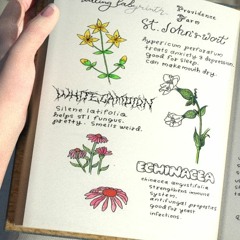 Healing Labyrinth
Providence
Farm
St. John's wort
Hypericum perforatum
treats anxiety & depression
good for sleep.
can make mouth dry.
WHITE CAMPION
Silene latifolia
helps sti fungus.
pretty. Smells weird.
ECHINACEA
echinacea angustifolia
strengthens immune
system.
antifungal properties
good for yeast
infections.